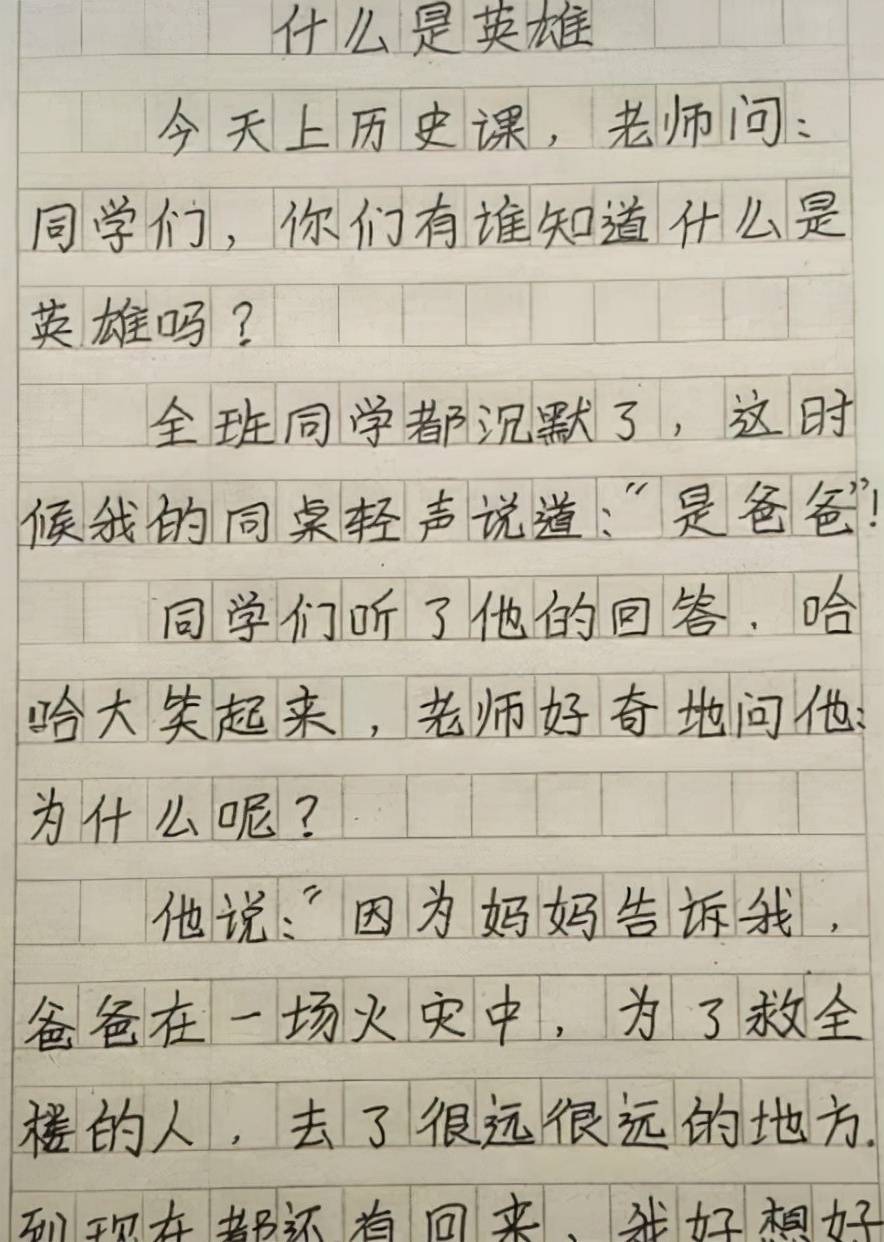 什么是英雄
今天上历史课，老师问：
同学们，你们有谁知道什么是
英雄吗？
全班同学都沉默了，这时
候我的同桌轻声说道：“是爸爸”！
同学们听了他的回答．哈
哈大笑起来，老师好奇地问他：
为什么呢？
他说：“因为妈妈告诉我，
爸爸在一场火灾中，为了救全
楼的人，去了很远很远的地方．
到现在都还有回来、我好想好